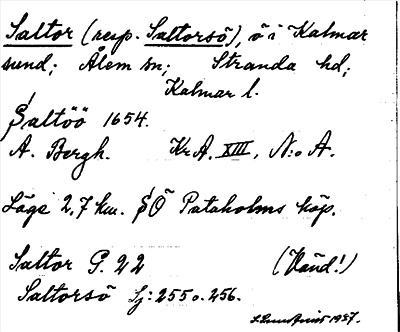 Saltor (resp. Saltorsö), ö i Kalmar
sund; Ålem sn; Stranda hd;
Kalmar l.
Saltöö 1654.
A. Bergh. Kr.A. XIII, N:o A.
Läge 2,7 km. SÖ Pataholms köp.
Saltor G. 22 (Vänd!)
Saltorsö Lj: 255 o. 256.
1937.